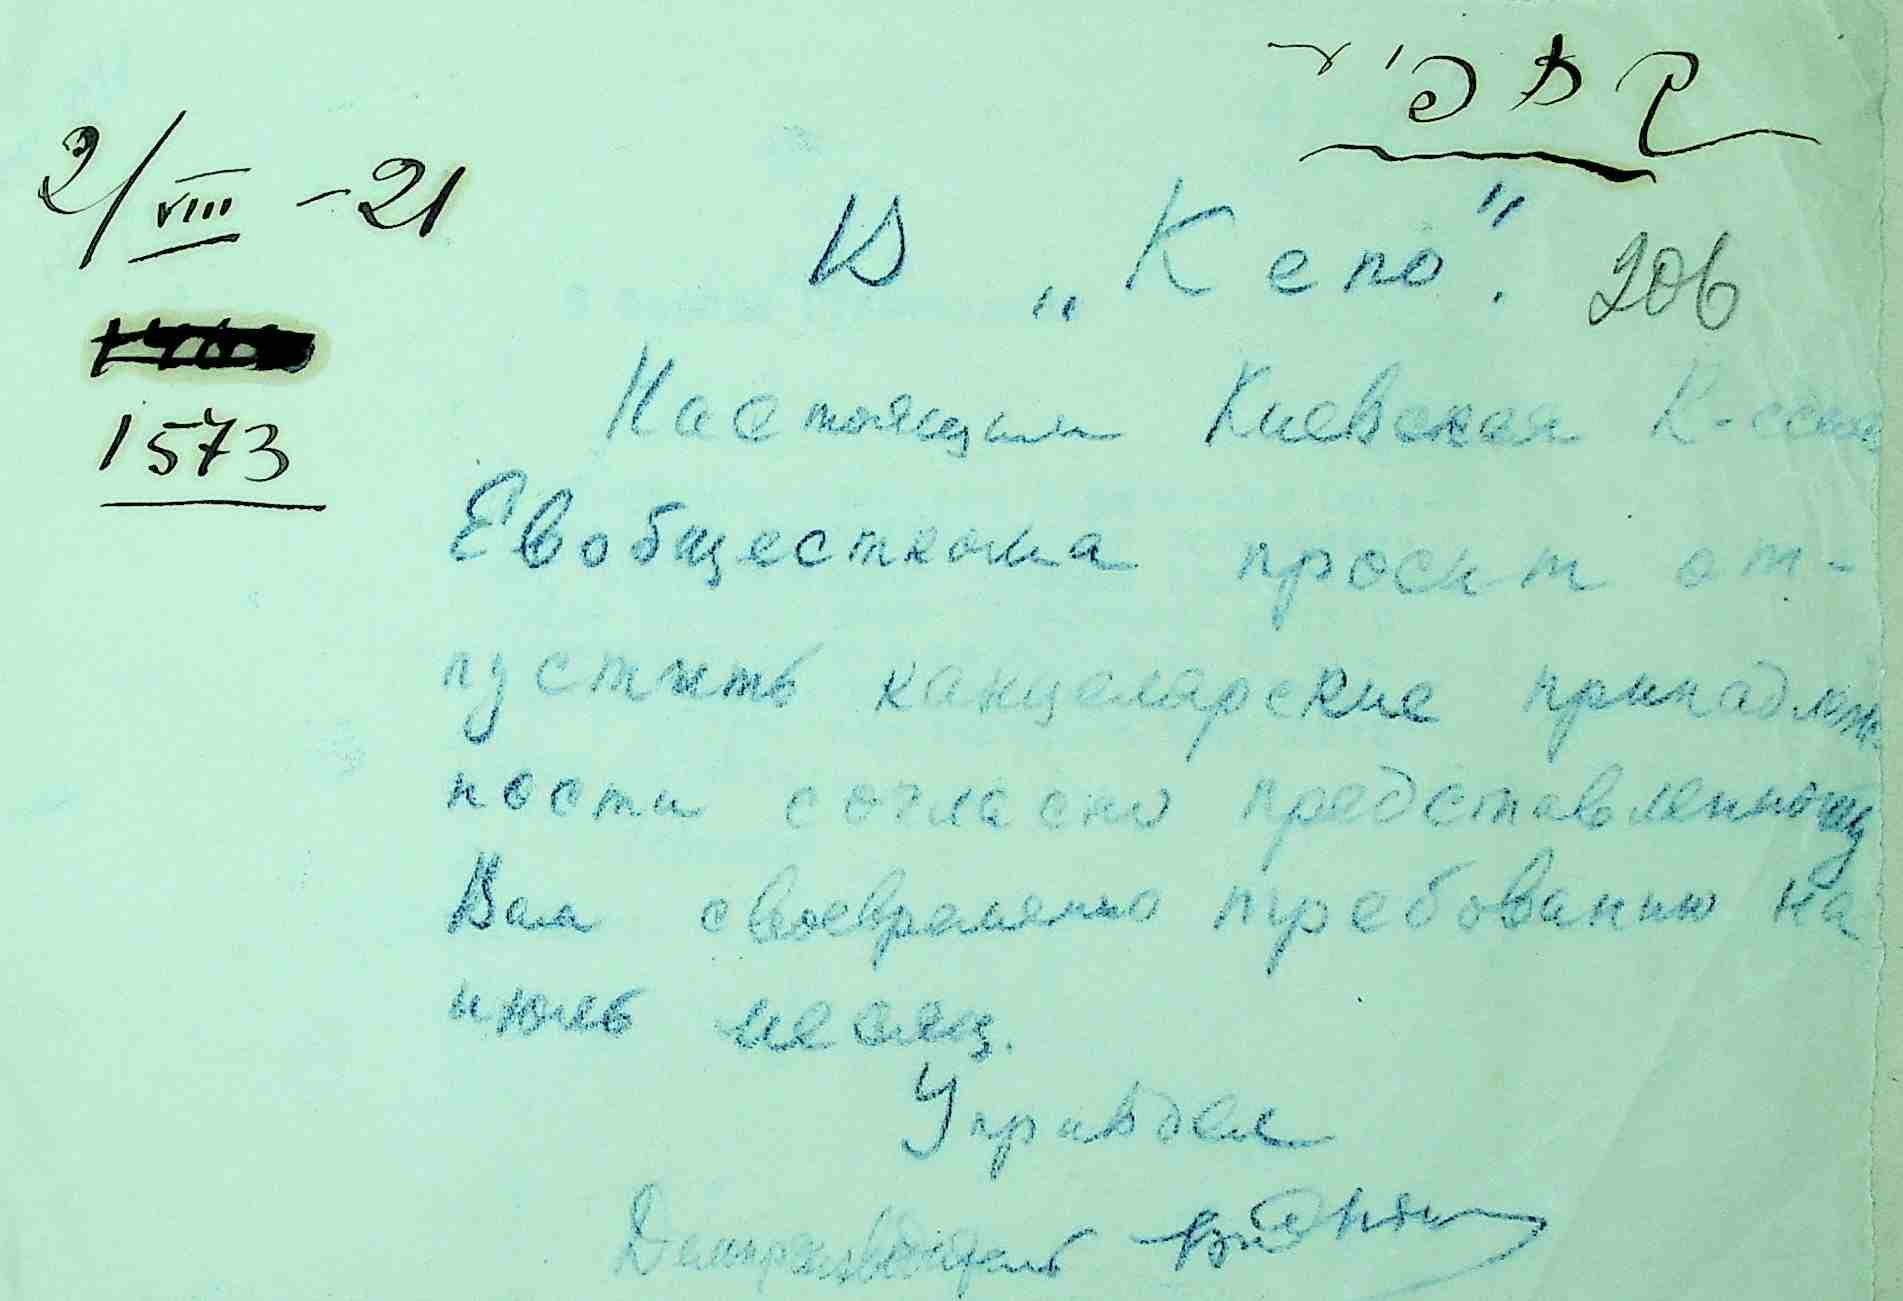 2/VIII -21
1573
В „Кепо".
206
Настоящим Киевская К-ссия
Евобщесткома просит от-
пустить канцелярские принадлеж
ности согласно представленному
Вам своевременно требованию на
июль месяц.
Управдел
Делопроизводитель